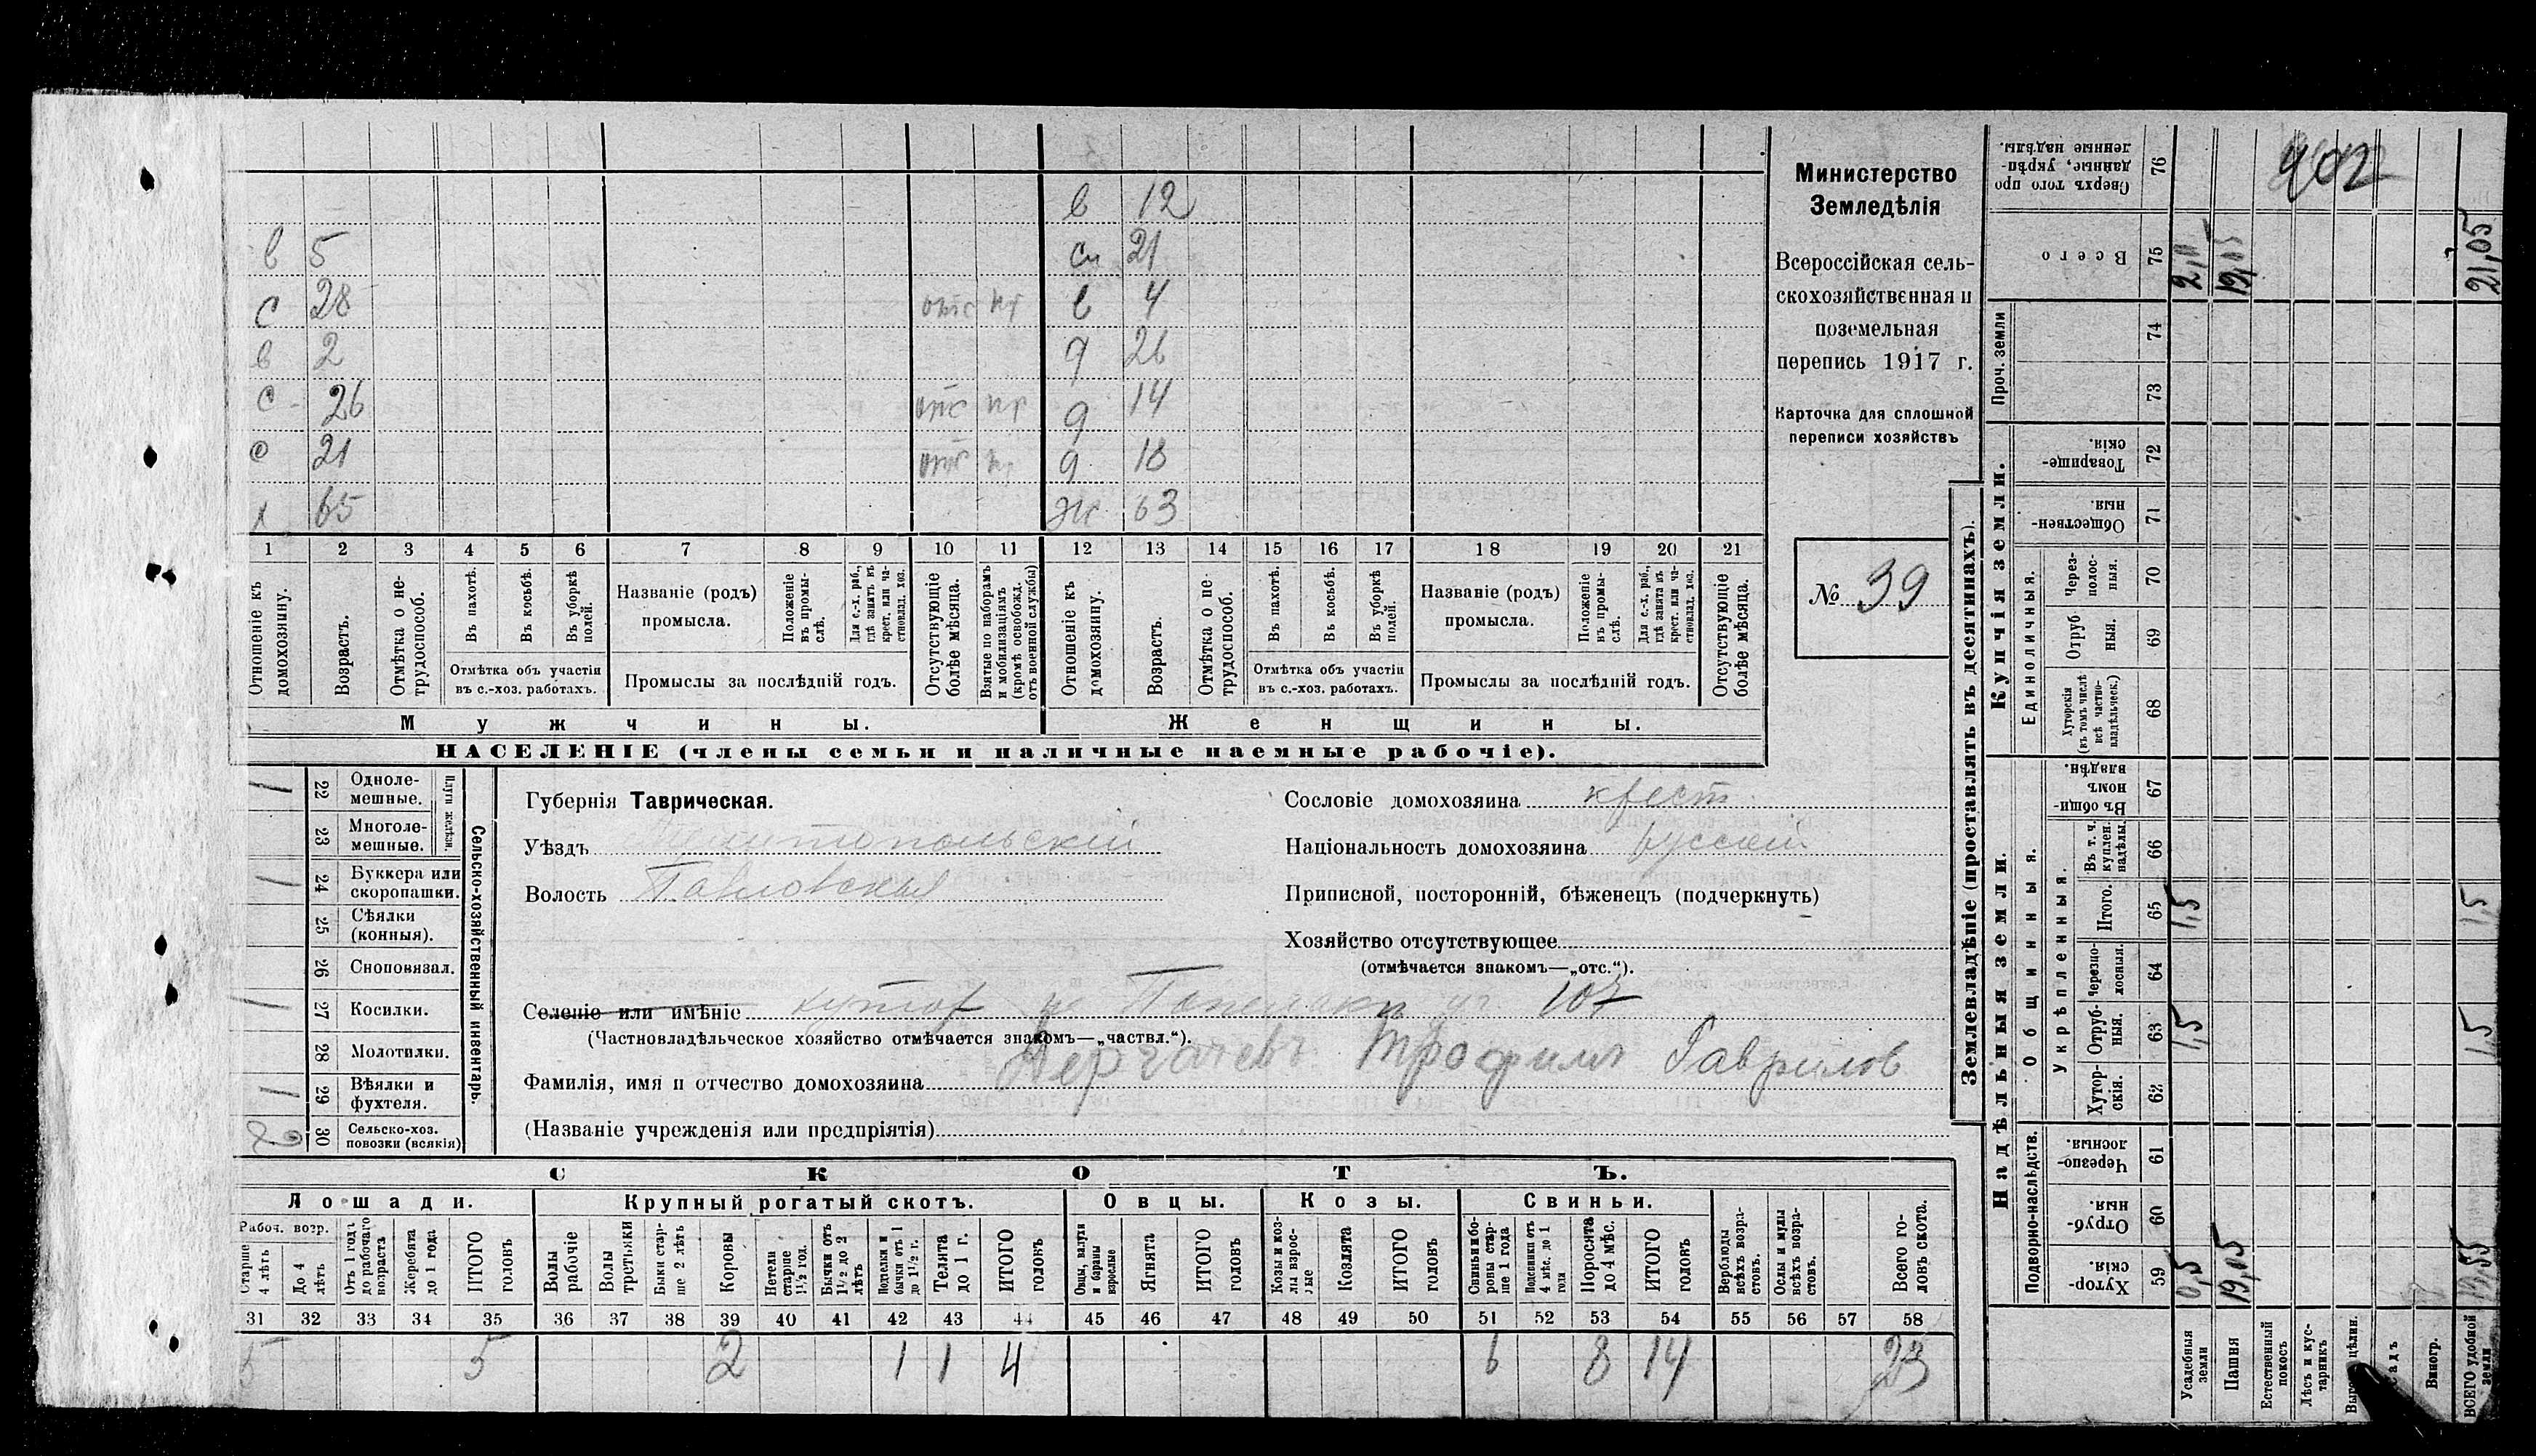 в 12
в 5 сн 21
с 28 отс в 4
в 2 д 26
с 26 отс д 14
с 21 отс д 18
х 65 Ж 63
1 2 3 4 5 6 7 8 9 10 11 12 13 14 15 16 17 18 19 20 21
Отношеніе къ домохозяину.
Возрастъ.
Отмѣтка о нетрудоспособ.
Въ пахотѣ.
Въ косьбѣ.
Въ уборкѣ полей.
Отмѣтка объ участіи
въ с.-хоз. работахъ.
Названіе (родъ)
промысла.
Положеніе въ промыслѣ.
Для с.-х. раб., гдѣ занятъ въ крест. или частновлад. хоз.
Промыслы за послѣдній годъ.
Отсутствующіе болѣе мѣсяца.
Взятые по наборамъ и мобилизаціямъ (кромѣ освобожд. отъ военной службы)
Отношеніе къ домохозяину.
Возрастъ.
Отмѣтка о нетрудоспособ.
Въ пахотѣ.
Въ косьбѣ.
Въ уборкѣ полей.
Отмѣтка объ участіи
въ с.-хоз. работахъ.
Названіе (родъ)
промысла.
Положеніе въ промыслѣ.
Для с.-х. раб., гдѣ занята въ крест. или частновлад. хоз.
Промыслы за послѣдній годъ.
Отсутствующіе болѣе мѣсяца.
Мужчины. Женщины.
НАСЕЛЕНІЕ (члены семьи и наличные наемные рабочіе).
Министерство
Земледѣлія
Всероссійская сель-
скохозяйственная и
поземельная
перепись 1917 г.
Карточка для сплошной
переписи хозяйствъ
№ 39
Сельско-хозяйственный инвентарь.
Плуги желѣзн.
1 22 Одноле-
мешные.
23 Многоле-
мешные.
1 24 Буккера или
скоропашки.
25 Сѣялки
(конныя).
26 Сноповязал.
1 27 Косилки.
28 Молотилки.
1 29 Вѣялки и
фухтеля.
2 30 Сельско-хоз.
повозки (всякія)
Губернія Таврическая.
Уѣздъ Мелитопольскій
Волость Павловская
Сословіе домохозяина крест.
Національность домохозяина русскій
Приписной, посторонній, бѣженецъ (подчеркнуть)
Хозяйство отсутствующее
(отмѣчается знакомъ—„отс.“).
Селеніе или имѣніе хутор 107
(Частновладѣльческое хозяйство отмѣчается знакомъ—„частвл.“).
Фамилія, имя и отчество домохозяина Дергачевъ Трофимъ Гаврилов
(Названіе учрежденія или предпріятія)
СКОТЪ.
Лошади. Крупный рогатый скотъ. Овцы. Козы. Свиньи.
Рабоч. возр.
Старше 4 лѣтъ
До 4 лѣтъ
Отъ 1 года до рабочаго возраста
Жеребята до 1 года
ИТОГО головъ
Волы рабочіе
Волы третьяки
Быки старше 2 лѣтъ
Коровы
Нетели старше 1½ год.
Бычки отъ 1½ до 2 лѣтъ
Подтелки и бычки отъ 1 до 1½ г.
Телята до 1 г.
ИТОГО головъ
Овцы, валухи и бараны взрослые
Ягнята
ИТОГО головъ
Козы и козлы взрослые
Козлята
ИТОГО головъ
Свиньи и боровы старше 1 года
Подсвинки отъ 4 мѣс. до 1 года
Поросята до 4 мѣс.
ИТОГО головъ
Верблюды всѣхъ возрастовъ.
Ослы и мулы всѣхъ возрастовъ.
Всего головъ скота.
31 32 33 34 35 36 37 38 39 40 41 42 43 44 45 46 47 48 49 50 51 52 53 54 55 56 57 58
5 5 2 1 1 4 6 8 14 23
Землевладѣніе (проставлять въ десятинахъ).
402
Сверхъ того проданные, укрѣпленные надѣлы. 76
Всего 75 2,0 19,05 21,05
Проч. земли
74
73
Купчія земли.
Товарищескія. 72
Общественныя. 71
Единоличныя.
Черезполосныя. 70
Отрубныя. 69
Хуторскія (въ томъ числѣ всѣ частновладѣльческ.) 68
Надѣльныя земли.
Общинныя.
Въ общинномъ владѣн. 67
Укрѣпленныя.
Въ т. ч. куплен. надѣлы. 66
Итого. 65 1,5 1,5
Черезполосныя. 64
Отрубныя. 63 1,5 1,5
Хуторскія. 62
Подворно-наслѣдств.
Черезполосныя. 61
Отрубныя. 60
Хуторскія. 59 0,5 19,05 19,55
Усадебныя земли
Пашня
Естественный покосъ
Лѣсъ и кустарникъ
Виногр.
ВСЕГО удобной земли